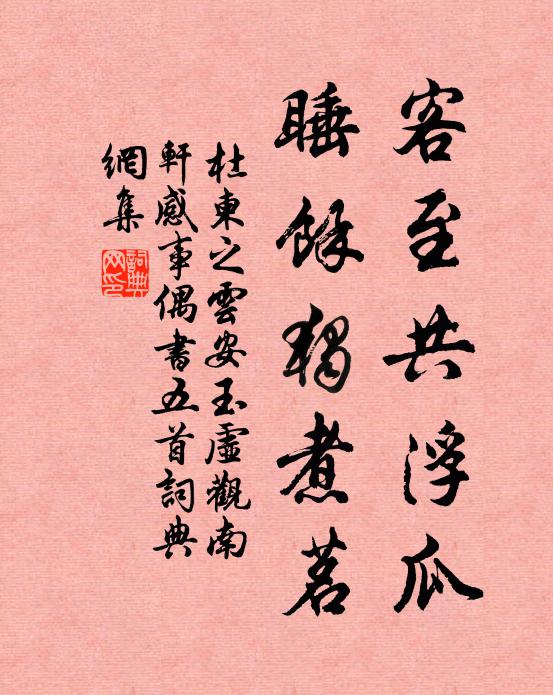 客至共浮瓜
睡餘獨煮茗
杜東之雲安玉虛觀南
軒感事偶書五首詞典
網集
詞典
网印